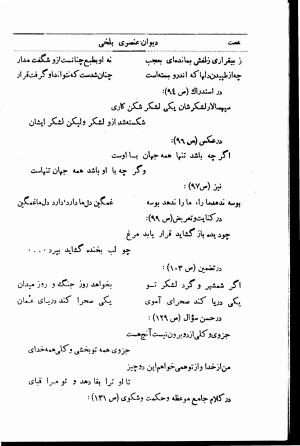 هصت دیوان عنصری بلخی
ز بیقراری زلفش بمانده‌ای بعجب نه او بطبع چنانست ازو شگفت مدار
چه از طپیدن دلها که اندرو بسته‌است چنان شدست که نتواند او گرفت قرار
در استدراك (ص ۹۴):
سپهسالار لشکرشان یکی لشکر شکن کاری
شکسته شد ازو لشکر ولیکن لشکر ایشان
در عکس (ص ۹۶):
اگر چه باشد تنها همه جهان با اوست
وگر چه با او باشد همه جهان تنهاست
نیز (ص ۹۷):
بوسه ندهد ما را، ما را ندهد بوسه غمگین دل ما دارد، دارد دل ما غمگین
در کنایت و تعریض (ص ۹۹):
چو دیده باز گشاید قرار یابد مرغ
چو لب بخنده گشاید ببرد ....
در تضمین (ص ۱۰۳):
اگر شمشیر و گرد لشکر تو بخواهد روز جنگ و روز میدان
یکی دریا کند صحرای آموی یکی صحرا کند دریای عمان
در حسن سؤال (ص ۱۲۹):
جزوی و کلی از دو برون نیست آنچ هست
جزوی همه تو بخشی و کلی همه خدای
من از خدا و از تو همی خواهم این دو چیز
تا او ترا بقا دهد و تو مرا قبای
در کلام جامع موعظه و حکمت و شکوی (ص ۱۳۱):